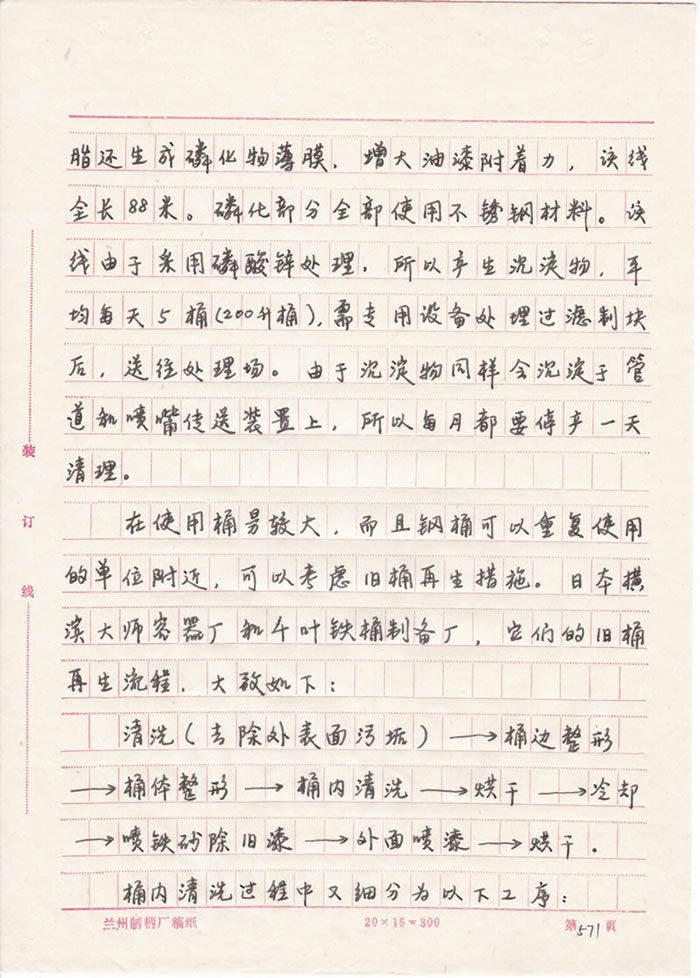 脂还生成磷化物薄膜，增大油漆附着力，该线
全长88米。磷化部分全部使用不锈钢材料。该
线由于采用磷酸锌处理，所以产生沉淀物，平
均每天5桶(200升桶)，需专用设备处理过滤制块
后，送往处理场。由于沉淀物同样会沉淀于管
道和喷嘴传送装置上，所以每月都要停产一天
清理。
在使用桶量较大，而且钢桶可以重复使用
的单位附近，可以考虑旧桶再生措施。日本横
滨大师容器厂和千叶铁桶制备厂，它们的旧桶
再生流程，大致如下：
清洗(去除外表面污垢)→桶边整形
→桶体整形→桶内清洗→烘干→冷却
→喷铁砂除旧漆→外面喷漆→烘干。
桶内清洗过程中又细分为以下工序：
装订线
兰州制桶厂稿纸 20×15=300 第571页